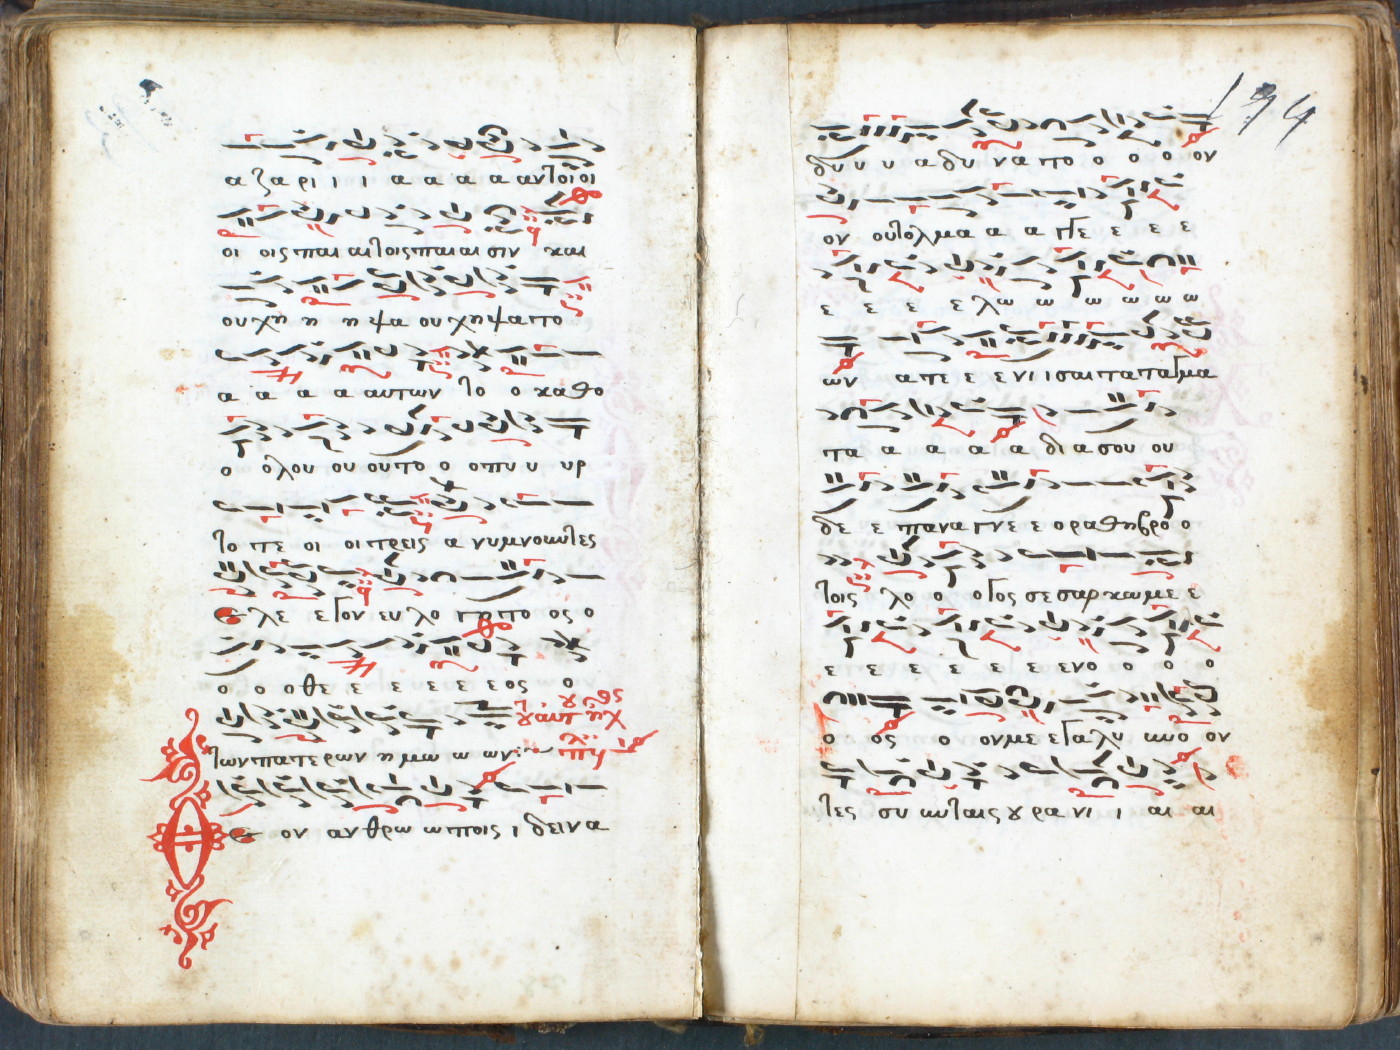 α ζα ρι ι ι α α α α αντοι οι
οι οις παι αι τοις παι αι σιν και
ου χη η η ψα ου χη ψα το
α α α α αυτων το ο καθο
ο όλου ου ου το ο ο πυ υ υρ
το τε οι οι τρεις α νυμνουντες
ε λε ε γον ευ λο γη το ος ο
ο ο ο θε ε ε ε ε ε ος ο
των πατερων η μω ω ων
Θε ον αν θρω ω ποις ι δειν α
194
δυ υ υ α δυ να το ο ο ο ον
ον ου τολμα α α τε ε ε ε
ε ε ε ε λω ω ω ω ω ω
ων α τε ε ε νι ι σαι τα ταγμα
τα α α α α δι α σου ου
δε ε πανα γνε ε ο ρα θη βρο ο
τοις λο ο ο γος σε σαρ κω με ε
ε ε ε ε ε ε ε νο ο ο ο
ο ος ο ον με ε γα λυ υνο ον
τες συ υν ταις ου ρα νι ι αι αι